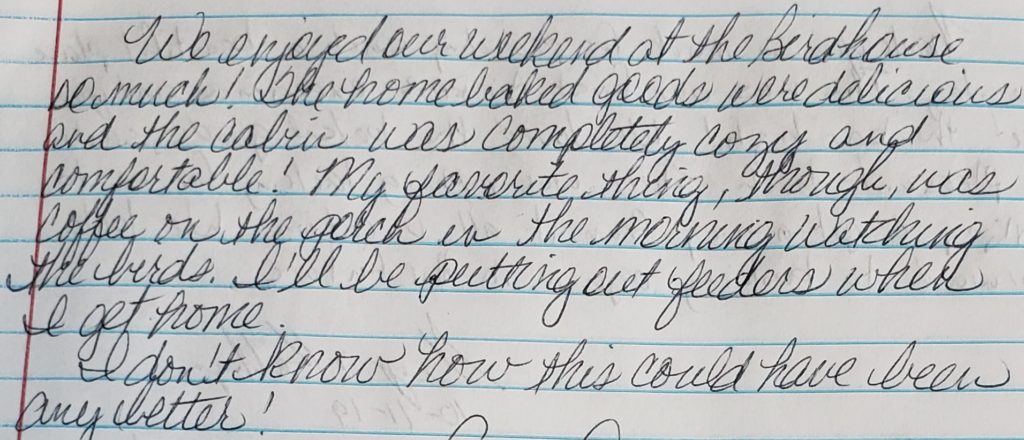 We enjoyed our weekend at the Birdhouse
so much! The home baked goods were delicious
and the cabin was completely cozy and
comfortable! My favorite thing, though, was
coffee on the porch in the morning watching
the birds. I'll be putting out feeders when
I get home.
I don't know how this could have been
any better!